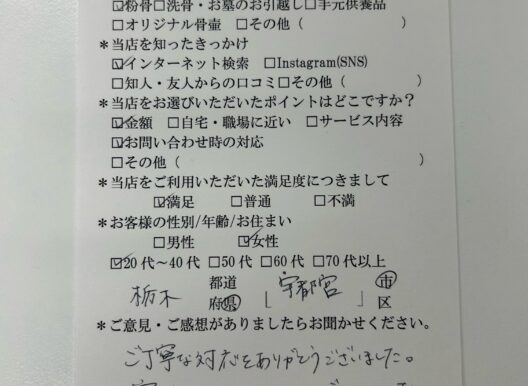 ☑粉骨□洗骨・お墓のお引越し□手元供養品
□オリジナル骨壷　□その他（　　　　　　　）
＊当店を知ったきっかけ
☑インターネット検索　□Instagram(SNS)
□知人・友人からの口コミ□その他（　　　　　）
＊当店をお選びいただいたポイントはどこですか？
☑金額　□自宅・職場に近い　□サービス内容
☑お問い合わせ時の対応
□その他（　　　　　　　　　　　　　　）
＊当店をご利用いただいた満足度につきまして
☑満足　□普通　□不満
＊お客様の性別/年齢/お住まい
□男性　☑女性
☑20代～40代 □50代 □60代 □70代以上
栃木 都道府県 「宇都宮」 市区
＊ご意見・ご感想がありましたらお聞かせください。
ご丁寧な対応をありがとうございました。